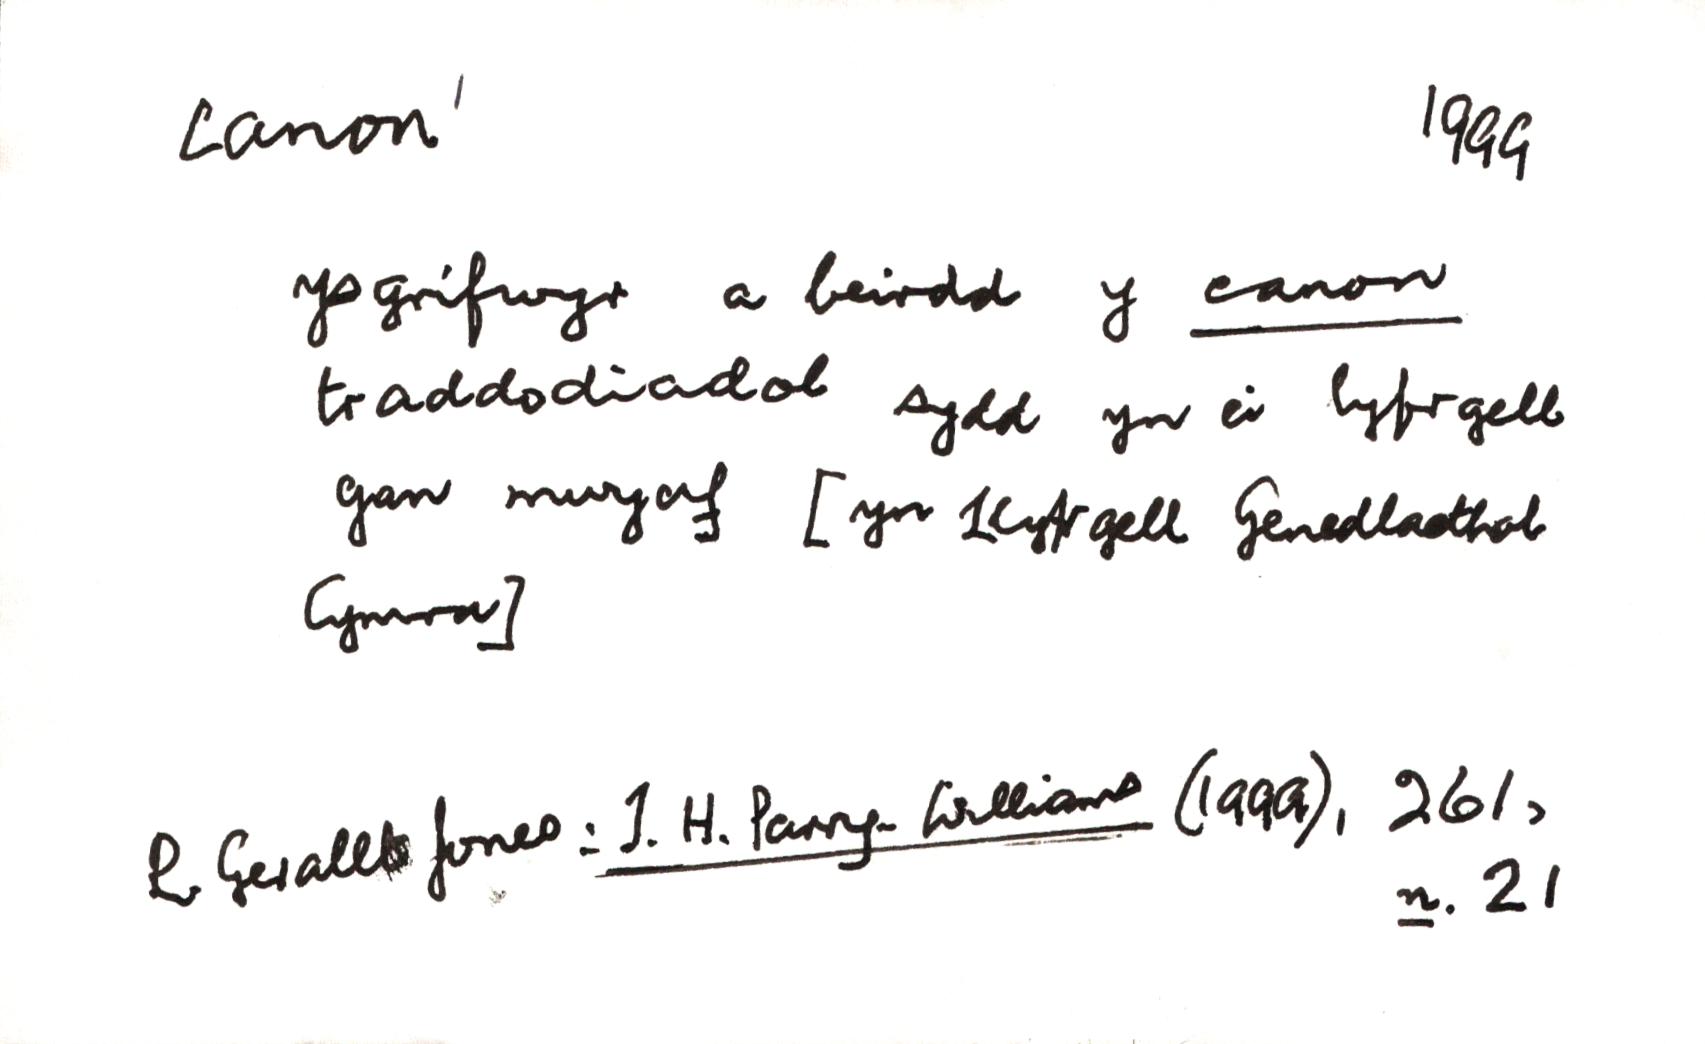 canon¹ 1999
ysgrifwyr a beirdd y canon
traddodiadol sydd yn ei lyfrgell
gan mwyaf [yn Llyfrgell Genedlaethol
Cymru]
R. Gerallt Jones: T. H. Parry-Williams (1999), 261,
n. 21